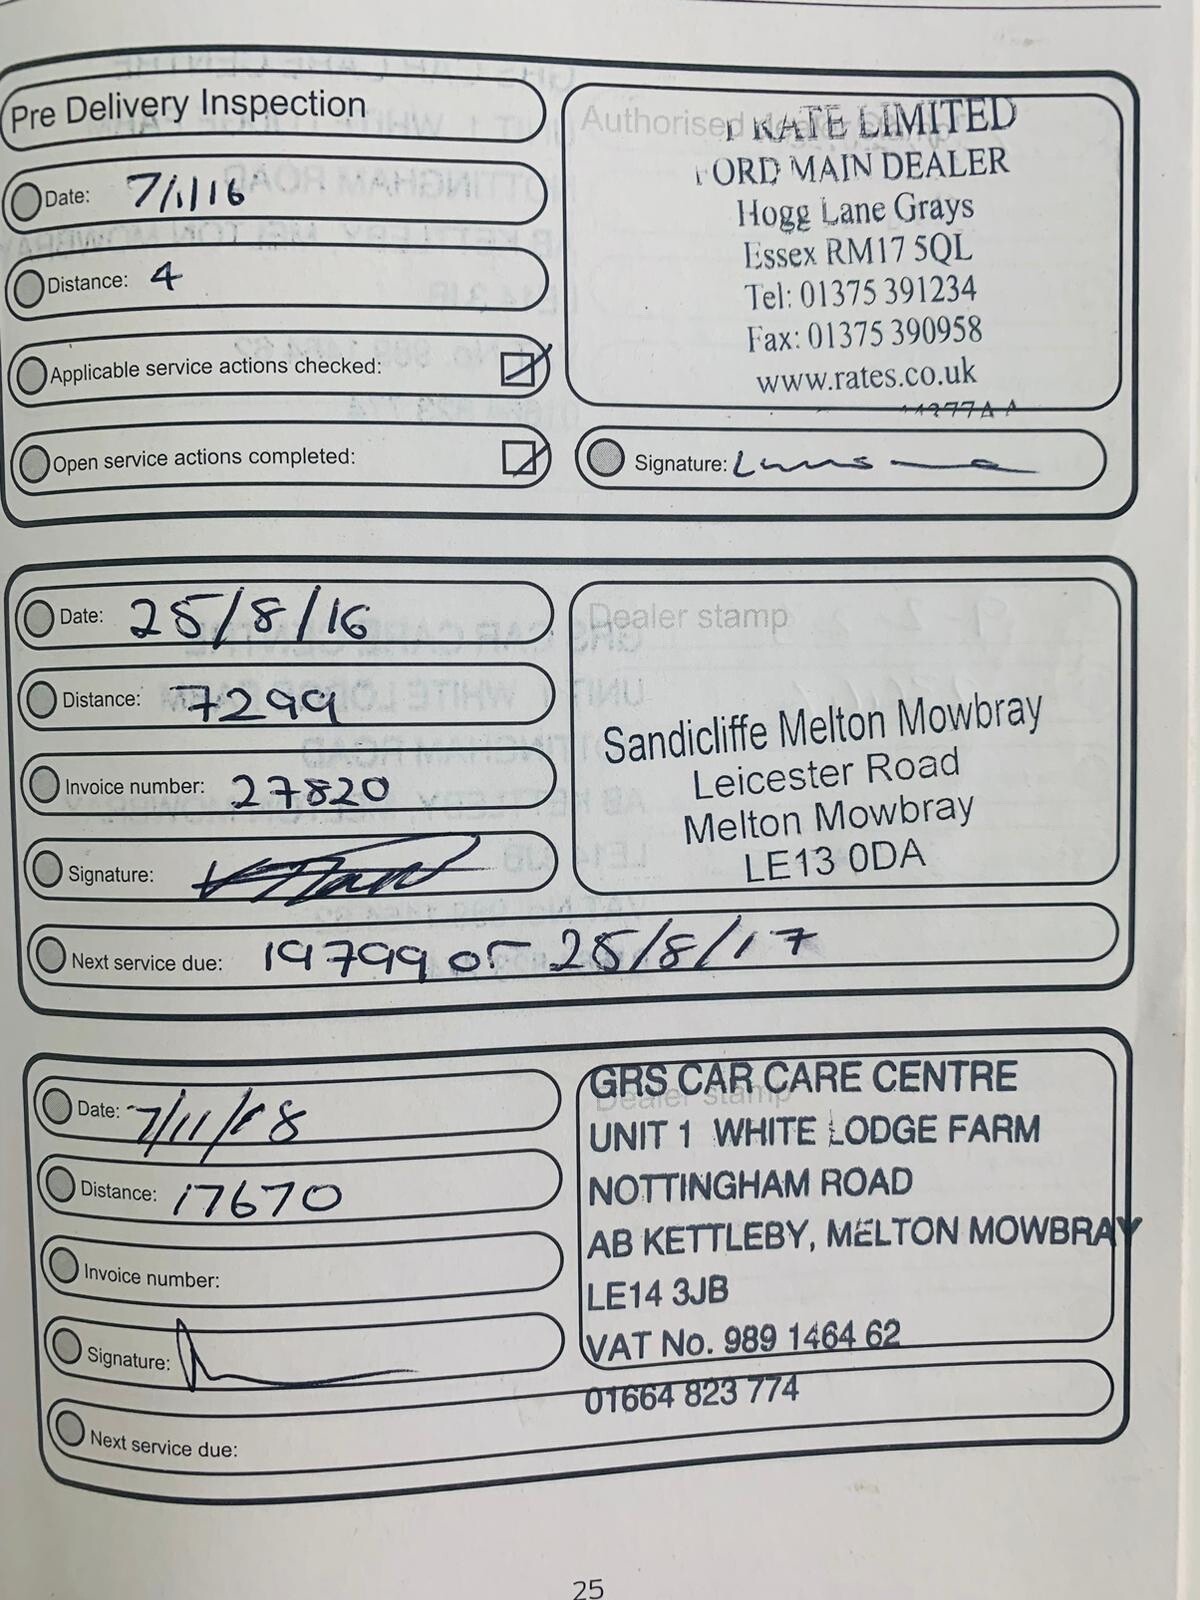 Pre Delivery Inspection
Date: 7/1/16
Distance: 4
Applicable service actions checked:
Open service actions completed:
Authorised dealer stamp
RATE LIMITED
FORD MAIN DEALER
Hogg Lane Grays
Essex RM17 5QL
Tel: 01375 391234
Fax: 01375 390958
www.rates.co.uk
Signature:
Date: 25/8/16
Distance: 7299
Invoice number: 27820
Signature:
Dealer stamp
Sandicliffe Melton Mowbray
Leicester Road
Melton Mowbray
LE13 0DA
Next service due: 19799 or 25/8/17
Date: 7/11/18
Distance: 17670
Invoice number:
Signature:
Dealer stamp
GRS CAR CARE CENTRE
UNIT 1 WHITE LODGE FARM
NOTTINGHAM ROAD
AB KETTLEBY, MELTON MOWBRAY
LE14 3JB
VAT No. 989 1464 62
01664 823 774
Next service due:
25